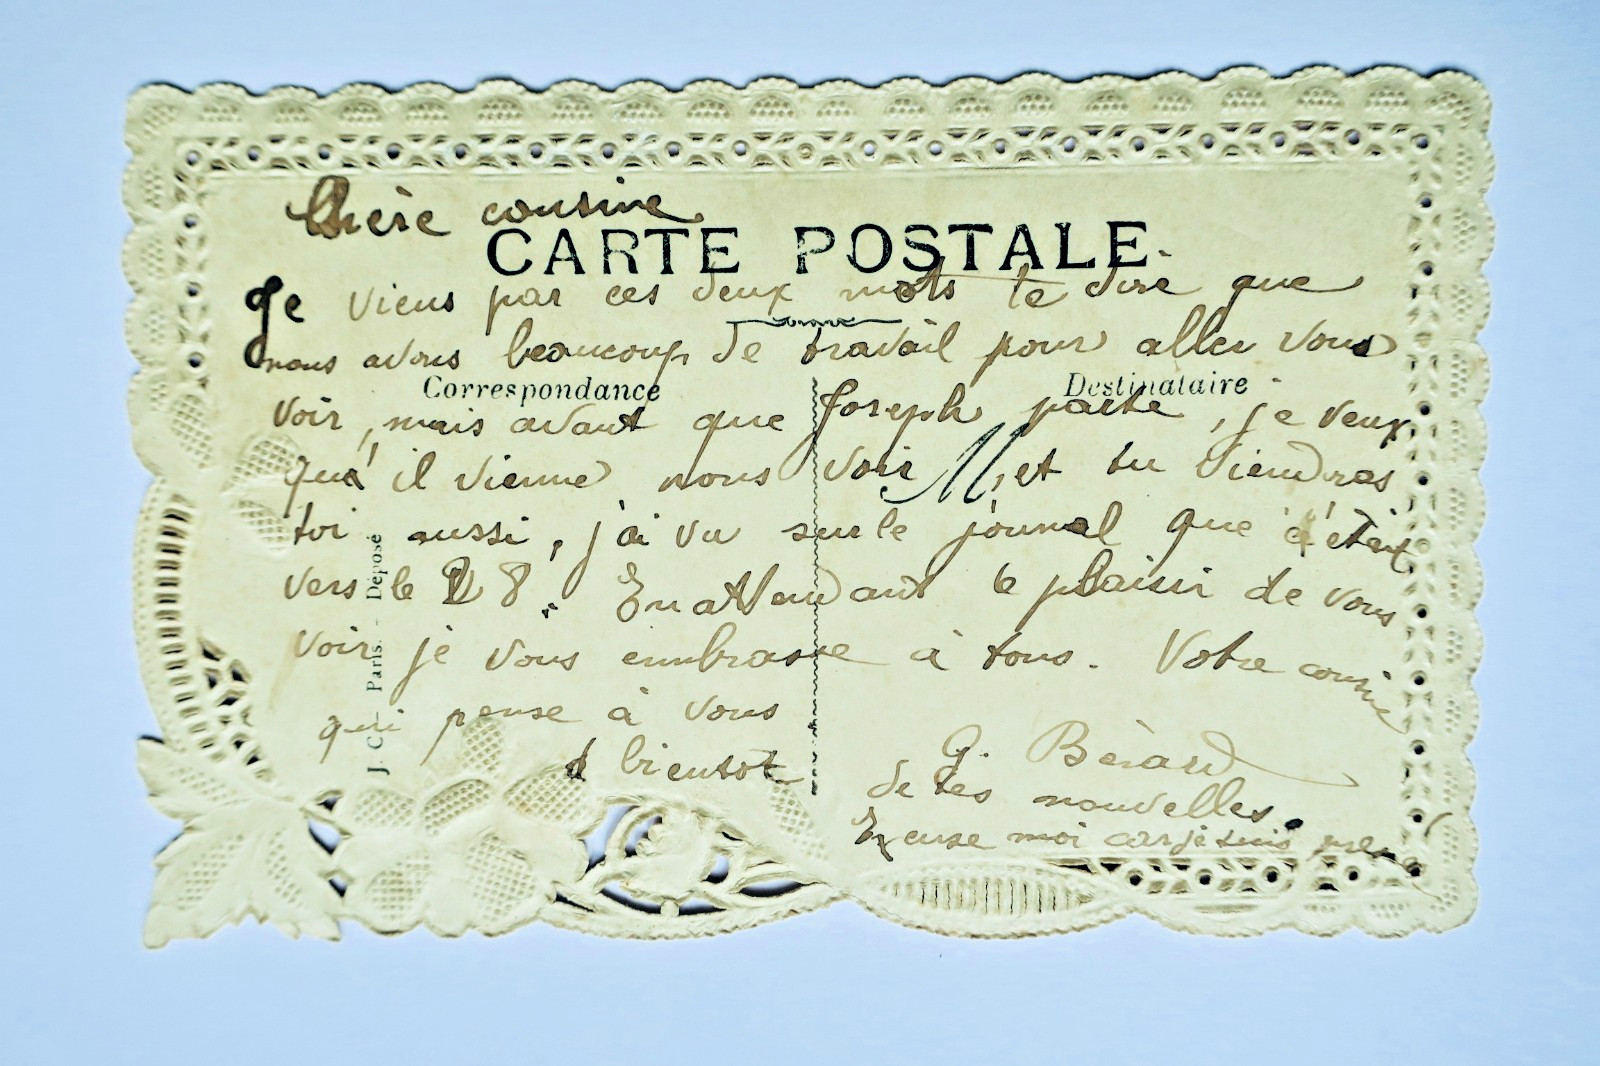 Chère cousine
CARTE POSTALE
Je viens par ces deux mots te dire que
nous avons beaucoup de travail pour aller vous
Correspondance
Destinataire
voir, mais avant que Joseph parte, je veux
qu'il vienne nous voir M, et tu viendras
toi aussi, j'ai vu sur le journal que c'était
vers le 28. En attendant le plaisir de vous
voir je vous embrasse à tous. Votre cousine
qui pense à vous
à bientot
G. Bérard
de tes nouvelles.
Excuse moi car je suis
J. C. Paris. - Déposé